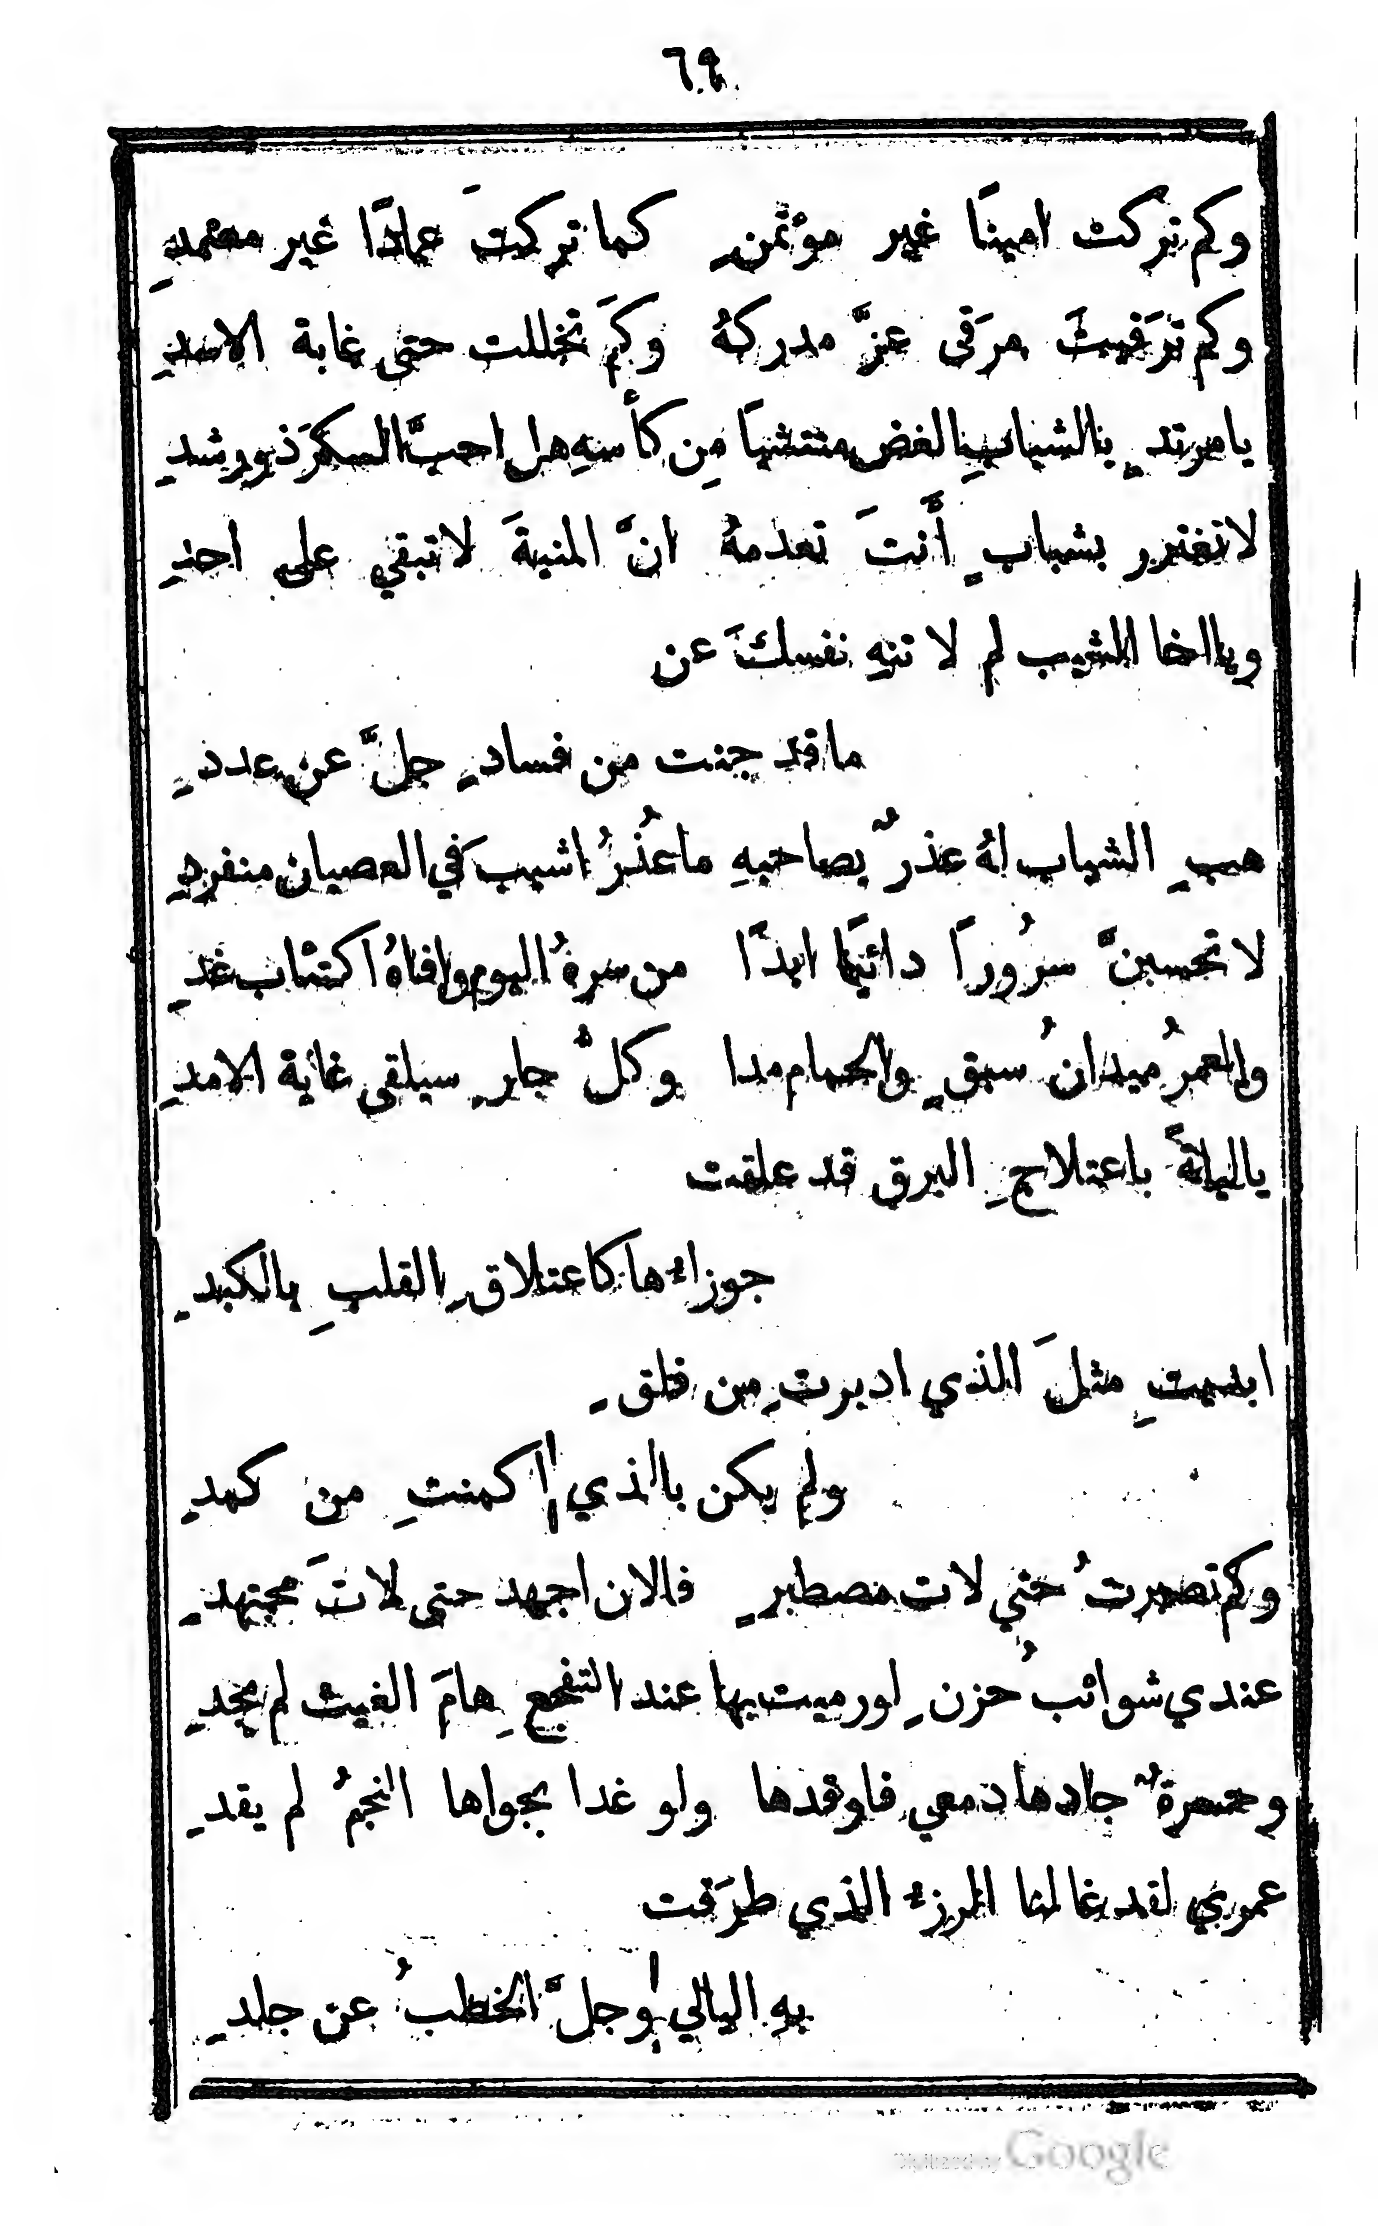 ٦٩
وكم تركت امينًا غير مؤتمنٍ كما تركتَ عمادًا غير معتمدِ
وكم ترَقيتَ مرَقى عزَّ مدركهُ وكمَ تخللت حتى غابة الاسدِ
يا مرتدٍ بالشبابِ الغض منتشيًا مِن كأسهِ هل احبَّ السكرَ ذو رشدِ
لا تغترر بشبابٍ أَنتَ تعدمهُ انَّ المنيةَ لا تبقي على احدِ
ويا اخا الشيب لم لا تنهِ نفسكَ عن
ما قد جنت من فسادٍ جلَّ عن عددِ
هبِ الشباب لهُ عذرٌ بصاحبهِ ما عُذرُ اشيبَ في العصيان منفردِ
لا تحسبنَّ سرُوراً دائمًا ابدًا من سرهُ اليوم وافاهُ اكتئاب غدِ
والعمرُ ميدانُ سبقٍ والحمام مدا وكلُّ جارٍ سيلقى غاية الامدِ
يا ليلةً باعتلاجِ البرق قد علقت
جوزاءها كاعتلاقِ القلبِ بالكبدِ
ابديتِ مثلَ الذي ادبرتِ من فلقِ
ولم يكن بالذي اكمنتِ من كمدِ
وكم تصبرتُ حتى لات مصطبرٍ فالان اجهد حتى لاتَ مجتهدِ
عندي شوائبُ حزنٍ لو رميت بها عند التفجعِ هامَ الغيث لم يجدِ
وحسرةٌ جادها دمعي فاوقدها ولو غدا بجواها النجمُ لم يقدِ
عمري لقد غالنا الرزء الذي طرَقت
بهِ الليالي وجلَّ الخطبُ عن جلدِ
Digitized by Google